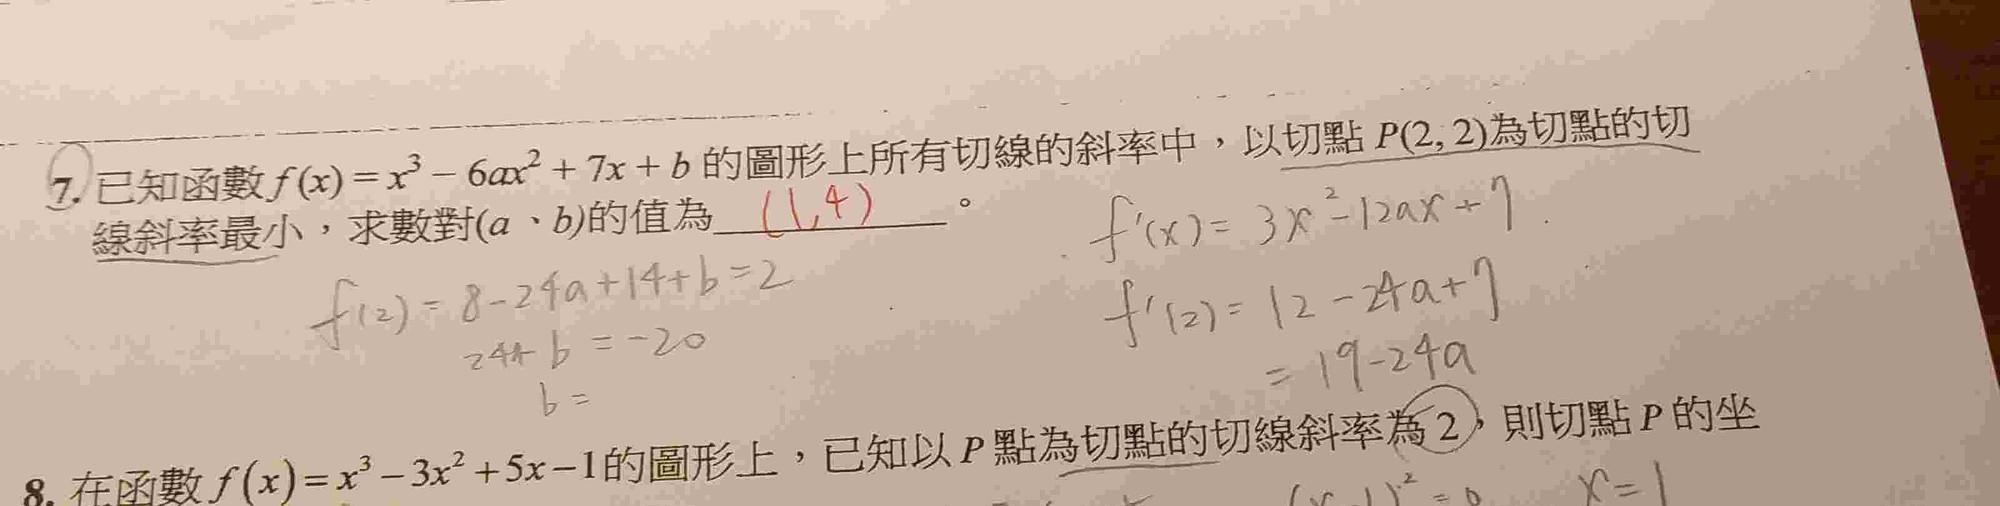 7. 已知函數 f(x) = x³ − 6ax² + 7x + b 的圖形上所有切線的斜率中，以切點 P(2, 2)為切點的切
線斜率最小，求數對(a、b)的值為 (1,4) 。
f'(x) = 3x² - 12ax + 7
f(2) = 8 - 24a + 14 + b = 2
f'(2) = 12 - 24a + 7
b = -20
= 19 - 24a
b =
8. 在函數 f(x) = x³ − 3x² + 5x − 1的圖形上，已知以 P 點為切點的切線斜率為 2，則切點 P 的坐
x = 1